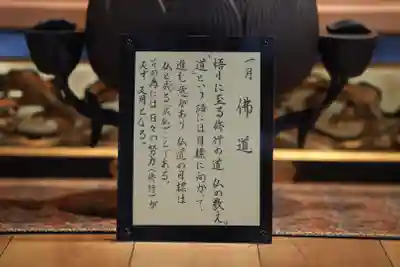 一月　佛道
悟りに至る修行の道 仏の教え。
"道"という語には目標に向かって、
進む意があり 仏道の目標は
仏と成る(成仏)ことである。
その為には 日々の努力(修行)が
天才 又月となる。